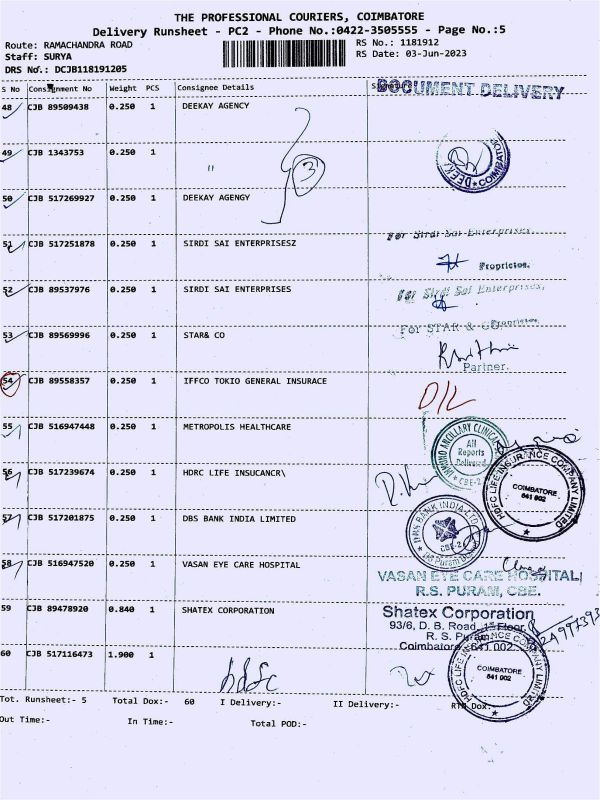 THE PROFESSIONAL COURIERS, COIMBATORE
Delivery Runsheet - PC2 - Phone No.:0422-3505555 - Page No.:5
Route: RAMACHANDRA ROAD RS No.: 1181912
Staff: SURYA RS Date: 03-Jun-2023
DRS No.: DCJB118191205
S No Consignment No Weight PCS Consignee Details Signature
DOCUMENT DELIVERY
48 CJB 89509438 0.250 1 DEEKAY AGENCY
49 CJB 1343753 0.250 1 "
3
DEEKAY COIMBATORE
50 CJB 517269927 0.250 1 DEEKAY AGENGY
51 CJB 517251878 0.250 1 SIRDI SAI ENTERPRISESZ
For Sirdi Sai Enterprises,
Proprietor.
52 CJB 89537976 0.250 1 SIRDI SAI ENTERPRISES
For Sirdi Sai Enterprises,
53 CJB 89569996 0.250 1 STAR& CO
For STAR & Co
Partner.
54 CJB 89558357 0.250 1 IFFCO TOKIO GENERAL INSURACE
D/L
55 CJB 516947448 0.250 1 METROPOLIS HEALTHCARE
ANCILLARY CLINICAL
All
Reports
Delivered
CBE-2
56 CJB 517239674 0.250 1 HDRC LIFE INSUCANCR\
HDFC LIFE INSURANCE COMPANY LIMITED
COIMBATORE
641 002
57 CJB 517201875 0.250 1 DBS BANK INDIA LIMITED
DBS BANK INDIA LTD
CBE-2
RS Puram
58 CJB 516947520 0.250 1 VASAN EYE CARE HOSPITAL
VASAN EYE CARE HOSPITAL
R.S. PURAM, CBE.
59 CJB 89478920 0.840 1 SHATEX CORPORATION
Shatex Corporation
93/6, D. B. Road, 1st Floor,
R. S. Puram,
Coimbatore - 641 002.
60 CJB 517116473 1.900 1
hdfc
HDFC LIFE INSURANCE COMPANY LIMITED
COIMBATORE
641 002
Tot. Runsheet:- 5 Total Dox:- 60 I Delivery:- II Delivery:- RTN Dox:-
Out Time:- In Time:- Total POD:-